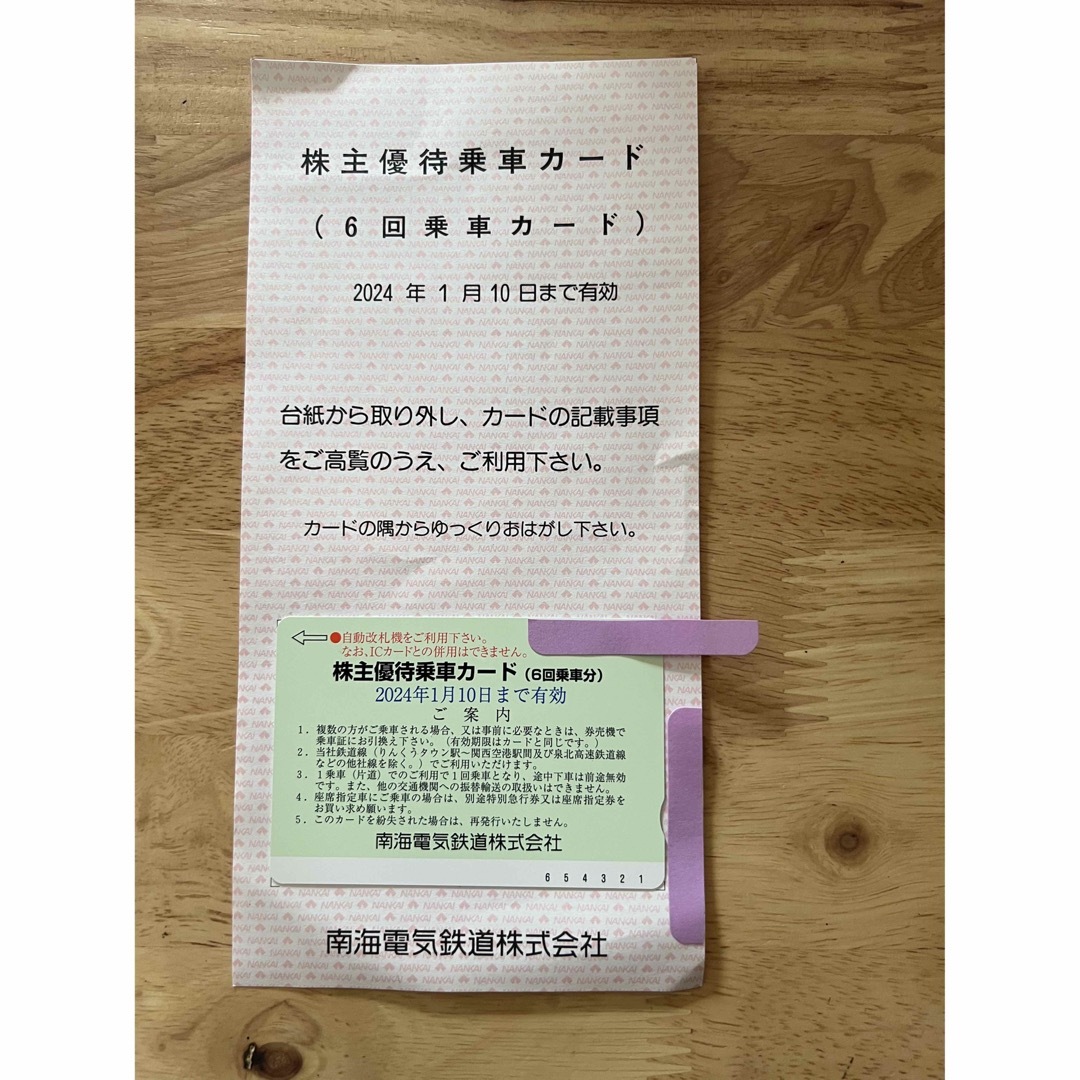 株主優待乗車カード
(6回乗車カード)
2024 年 1 月 10 日まで有効
台紙から取り外し、カードの記載事項
をご高覧のうえ、ご利用下さい。
カードの隅からゆっくりおはがし下さい。
●自動改札機をご利用下さい。
なお、ICカードとの併用はできません。
株主優待乗車カード(6回乗車分)
2024年1月10日まで有効
ご 案 内
1.複数の方がご乗車される場合、又は事前に必要なときは、券売機で
乗車証にお引換え下さい。(有効期限はカードと同じです。)
2.当社鉄道線(りんくうタウン駅〜関西空港駅間及び泉北高速鉄道線
などの他社線を除く。)でご利用いただけます。
3.1乗車(片道)でのご利用で1回乗車となり、途中下車は前途無効
です。また、他の交通機関への振替輸送の取扱いはできません。
4.座席指定車にご乗車の場合は、別途特別急行券又は座席指定券を
お買い求め願います。
5.このカードを紛失された場合は、再発行いたしません。
南海電気鉄道株式会社
6 5 4 3 2 1
南海電気鉄道株式会社